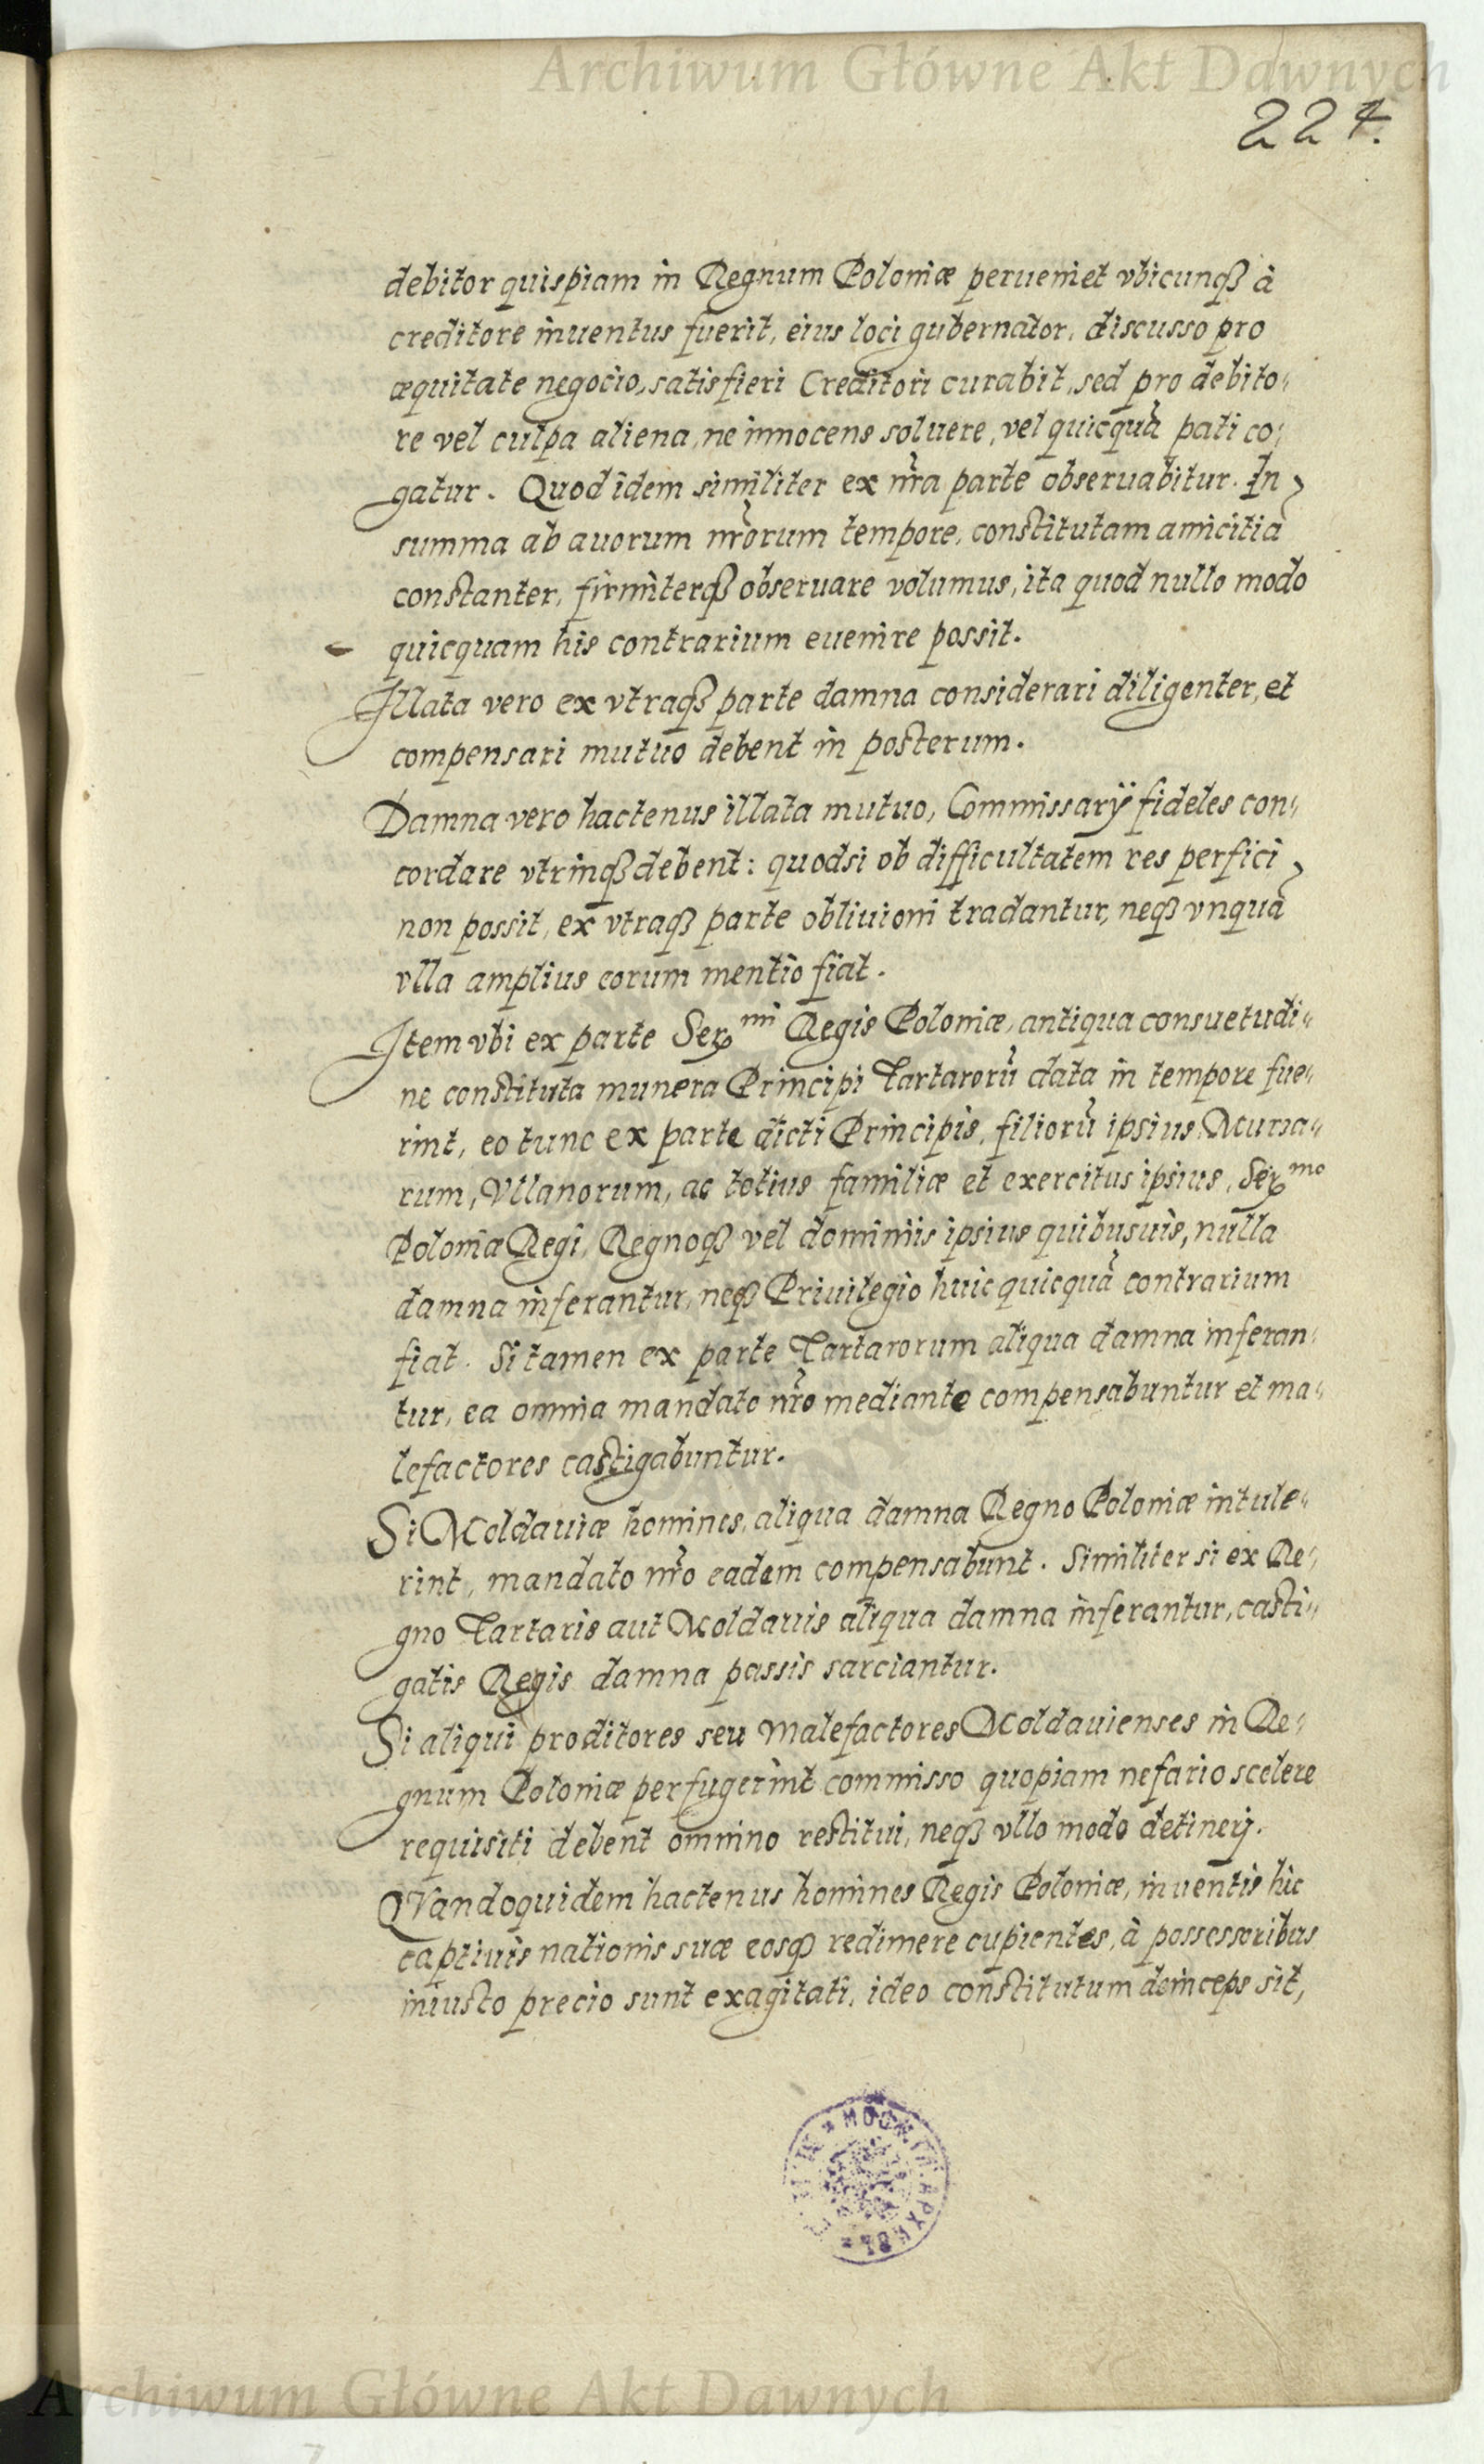 Archiwum Główne Akt Dawnych
224.
debitor quispiam in Regnum Poloniæ perueniet vbicunqꝫ à
creditore inuentus fuerit, eius loci gubernator, discusso pro
æquitate negocio, satisfieri Creditori curabit, sed pro debito„
re vel culpa aliena, ne innocens soluere, vel quicquã pati co„
gatur. Quod idem similiter ex nr̃a parte obseruabitur. In
summa ab auorum nr̃orum tempore, constitutam amicitiã
constanter, firmiterqꝫ obseruare volumus, ita quod nullo modo
quicquam his contrarium euenire possit.
Illata vero ex vtraqꝫ parte damna considerari diligenter, et
compensari mutuo debent in posterum.
Damna vero hactenus illata mutuo, Commissarÿ fideles con„
cordare vtrinqꝫ debent: quodsi ob difficultatem res perfici
non possit, ex vtraqꝫ parte obliuioni tradantur, neqꝫ vnquã
vlla amplius eorum mentio fiat.
Item vbi ex parte Ser^mi Regis Poloniæ, antiqua consuetudi„
ne constituta munera Principi Tartarorũ data in tempore fue„
rint, eo tunc ex parte dicti Principis, filiorũ ipsius, Murza„
rum, Vllanorum, ac totius familiæ et exercitus ipsius, Ser^mo
Poloniæ Regi, Regnoqꝫ vel dominiis ipsius quibusuis, nulla
damna inferantur, neqꝫ Priuilegio huic quicquã contrarium
fiat. Si tamen ex parte Tartarorum aliqua damna inferan„
tur, ea omnia mandato nr̃o mediante compensabuntur et ma„
lefactores castigabuntur.
Si Moldauiæ homines, aliqua damna Regno Poloniæ intule„
rint, mandato nr̃o eadem compensabunt. Similiter si ex Re„
gno Tartaris aut Moldauis aliqua damna inferantur, casti„
gatis Regis damna passis sarciantur.
Si aliqui proditores seu malefactores Moldauienses in Re„
gnum Poloniæ perfugerint commisso quopiam nefario scelere
requisiti debent omnino restitui, neqꝫ vllo modo detinerj.
QVandoquidem hactenus homines Regis Poloniæ, inuentis hic
captiuis nationis suæ eosqꝫ redimere cupientes, à possessoribus
iniusto precio sunt exagitati, ideo constitutum deinceps sit,
Archiwum Główne Akt Dawnych